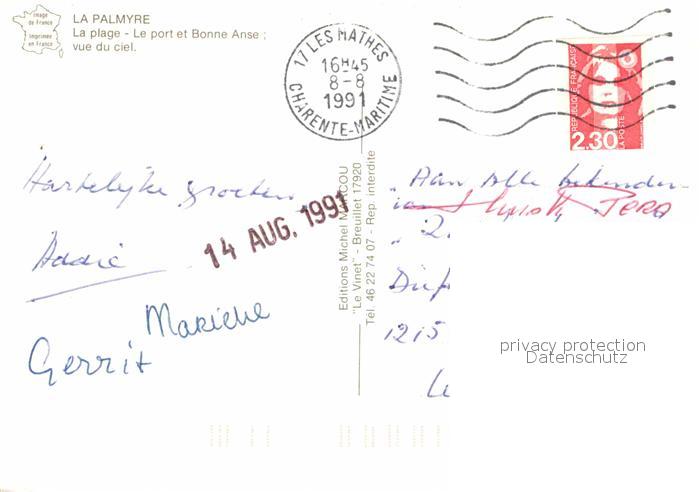 Image
de France
Imprimée
en France
LA PALMYRE
La plage - Le port et Bonne Anse :
vue du ciel.
17 LES MATHES
16H45
8-8
1991
CHARENTE-MARITIME
REPUBLIQUE FRANÇAISE
2,30
LA POSTE
Hartelijke groeten
Addie
Marielle
Gerrit
14 AUG. 1991
Editions Michel MARCOU
"Le Vinet" - Breuillet 17920
Tél. 46 22 74 07 - Rep. interdite
Aan Alle bekenden
van
2.
1215
privacy protection
Datenschutz